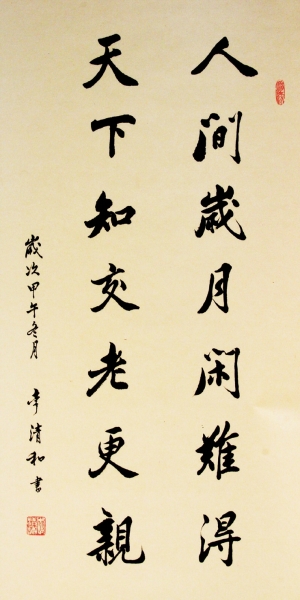 人間歲月閑難得
天下知交老更親
歲次甲午冬月 李清和書